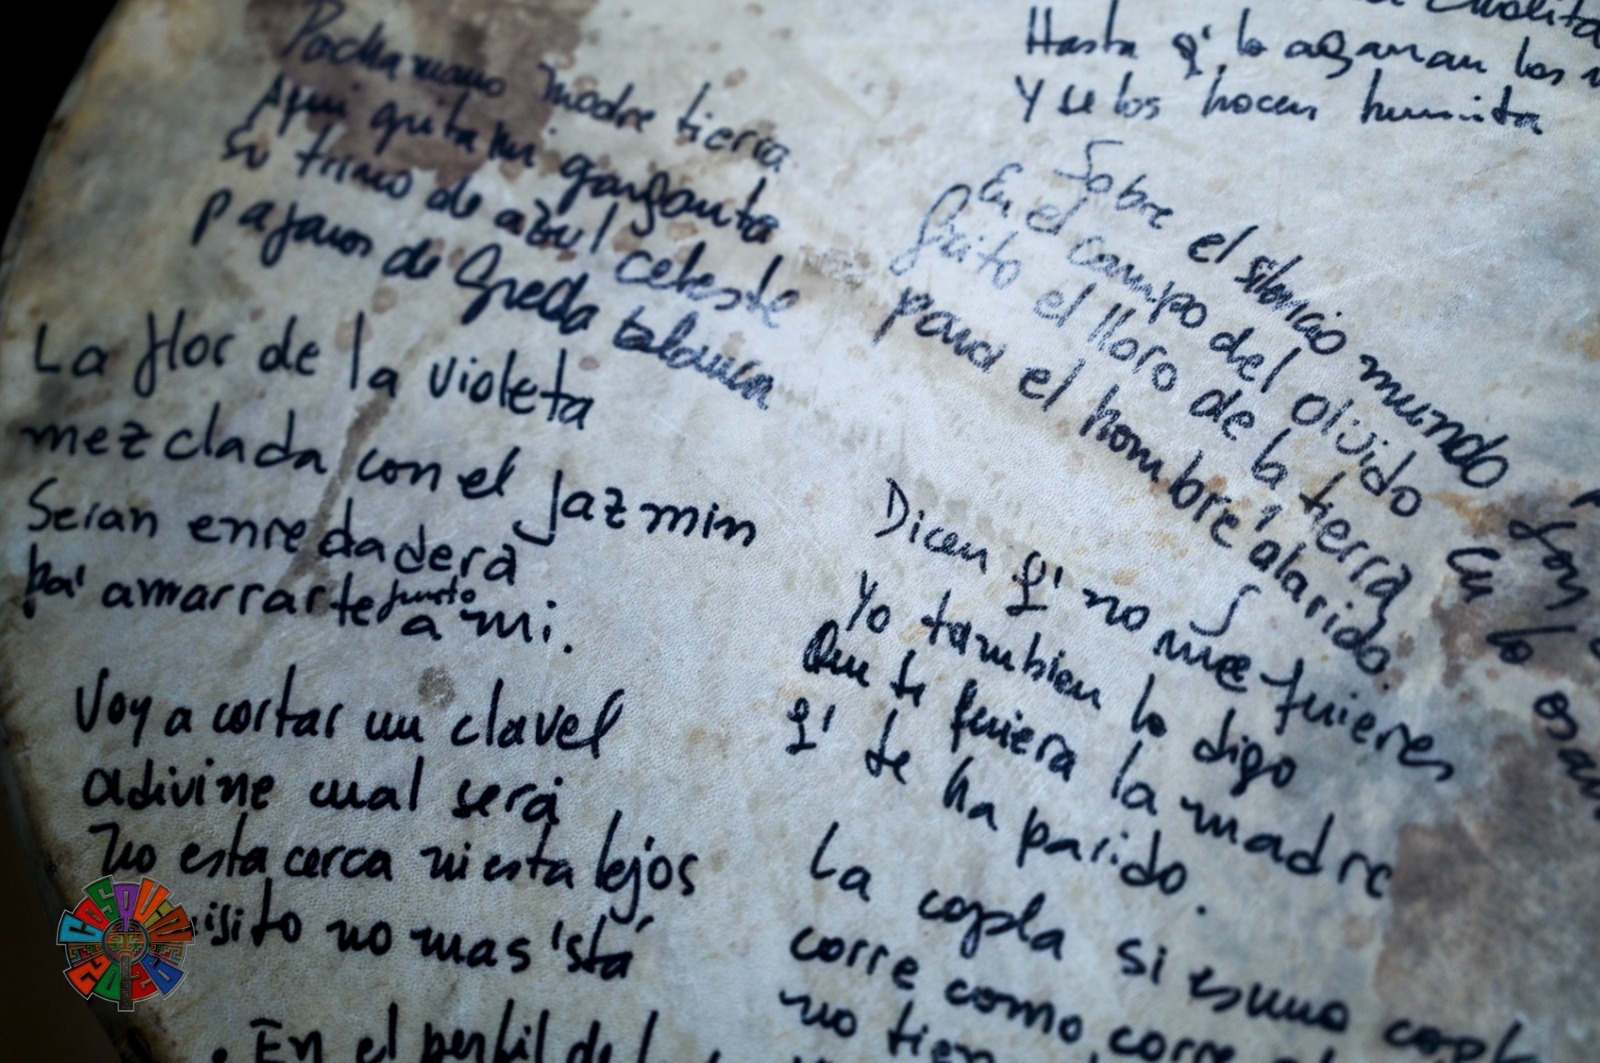 Pachamama madre tierra
Aqui grita mi garganta
Su trino de azul celeste
pajaros de Greda blanca
La flor de la violeta
mezclada con el Jazmin
Seran enredadera
pa' amarrarte junto a mi.
Voy a cortar un clavel
adivine cual será
No esta cerca ni esta lejos
no mas 'stá
En el perfil de l
Hasta q' lo agarran los
Y se los hacen humita
Sobre el silencio mundo
En el campo del olvido
Grito el lloro de la tierra
para el hombre alarido.
Dicen q' no me quieres
Yo tambien lo digo
Que te quiera la madre
q' te ha parido.
La copla si es una copl
corre como corre
no tien
COSQUIN
2026